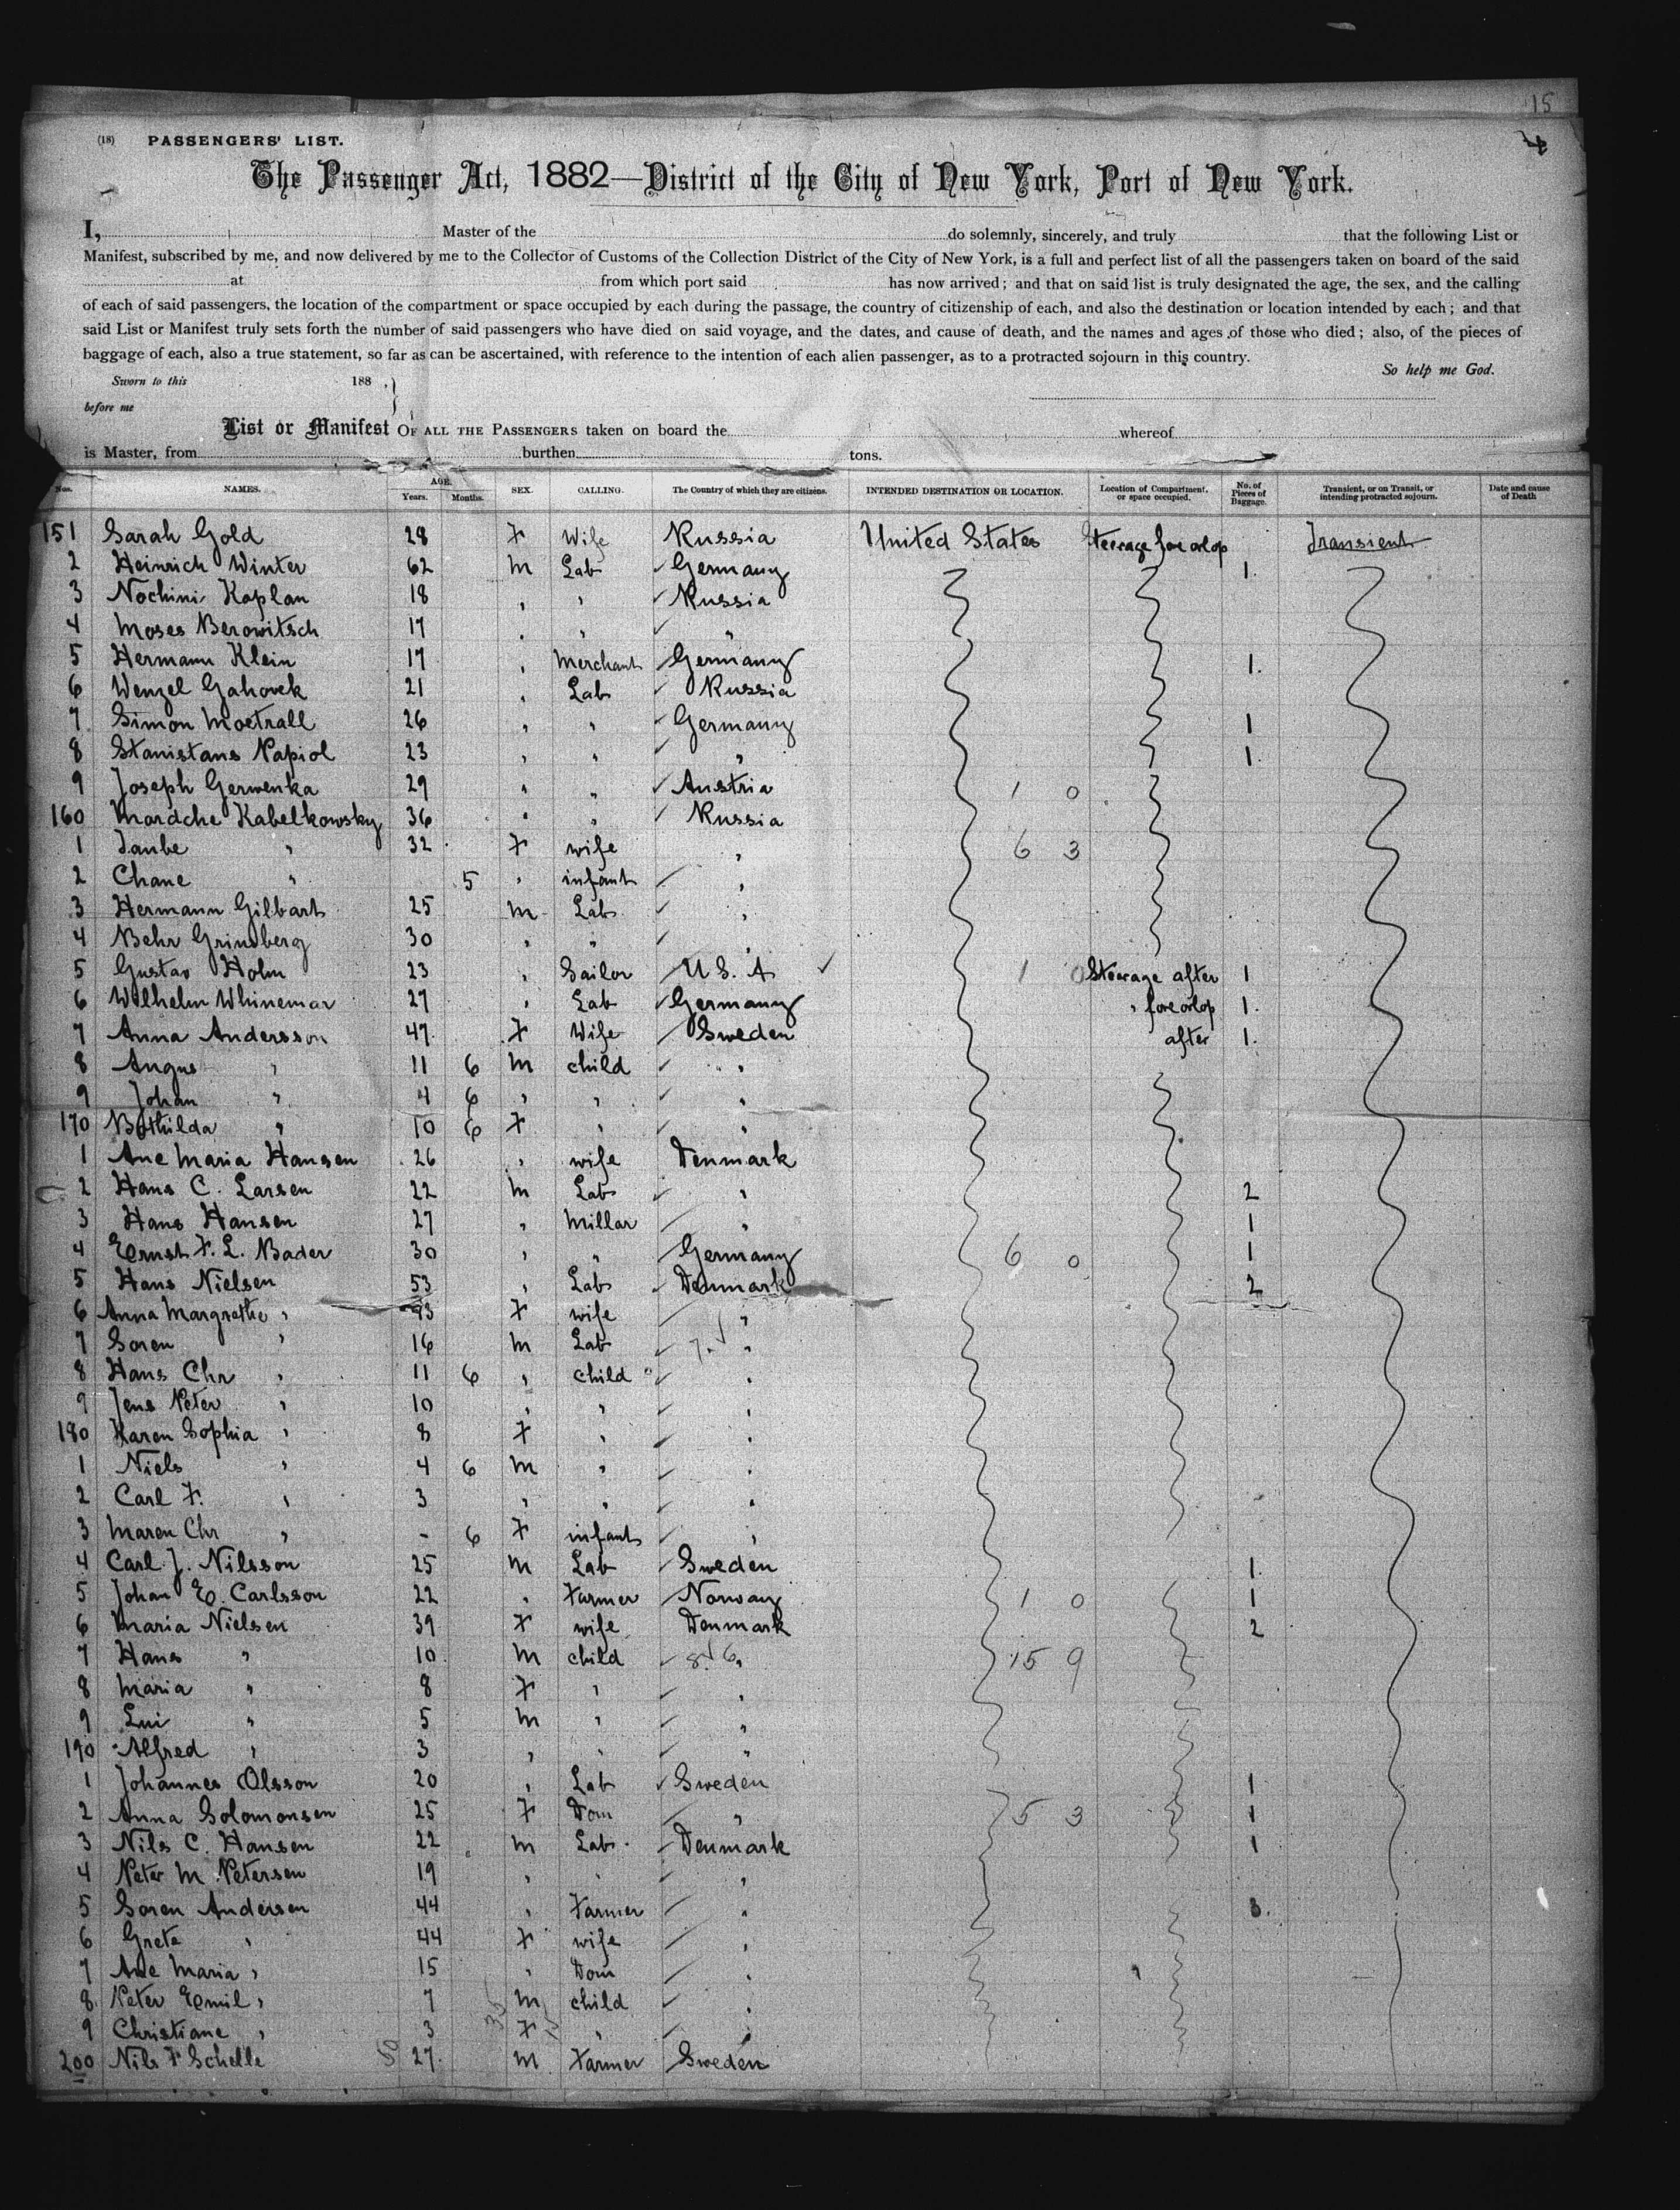 15
4
(18) PASSENGERS' LIST.
The Passenger Act, 1882—District of the City of New York, Port of New York.
I, Master of the do solemnly, sincerely, and truly that the following List or
Manifest, subscribed by me, and now delivered by me to the Collector of Customs of the Collection District of the City of New York, is a full and perfect list of all the passengers taken on board of the said
at from which port said has now arrived; and that on said list is truly designated the age, the sex, and the calling
of each of said passengers, the location of the compartment or space occupied by each during the passage, the country of citizenship of each, and also the destination or location intended by each; and that
said List or Manifest truly sets forth the number of said passengers who have died on said voyage, and the dates, and cause of death, and the names and ages of those who died; also, of the pieces of
baggage of each, also a true statement, so far as can be ascertained, with reference to the intention of each alien passenger, as to a protracted sojourn in this country.
So help me God.
Sworn to this 188 .
before me
List or Manifest OF ALL THE PASSENGERS taken on board the whereof
is Master, from burthen tons.
Nos. NAMES. AGE. Years. Months. SEX. CALLING. The Country of which they are citizens. INTENDED DESTINATION OR LOCATION. Location of Compartment, or space occupied. No. of Pieces of Baggage. Transient, or on Transit, or intending protracted sojourn. Date and cause of Death
151 Sarah Gold 28 F Wife Russia United States Steerage fore orlop Transient
2 Heinrich Winter 62 m Lab Germany 1.
3 Nochini Kaplan 18 " " Russia
4 Moses Berowitsch 17 " " "
5 Hermann Klein 17 " Merchant Germany 1.
6 Wenzel Gahovek 21 " Lab Russia
7 Simon Moetrall 26 " " Germany 1
8 Stanistans Napiol 23 " " " 1.
9 Joseph Gerwenka 29 " " Austria 1 0
160 Mardche Kabelkowsky 36 " " Russia
1 Taube " 32 F wife " 6 3
2 Chane " 5 " infant "
3 Hermann Gilbart 25 m Lab "
4 Behr Grinsberg 30 " " "
5 Gustav Holm 23 " Sailor U S. A 1 0 Steerage after 1
6 Wilhelm Whinemar 27 " Lab Germany " fore orlop 1.
7 Anna Andersson 47 F Wife Sweden after 1.
8 Angus " 11 6 m child "
9 Johan " 4 6 " " "
170 Bothilda " 10 6 F " "
1 Ane Maria Hansen 26 " wife Denmark
2 Hans C. Larsen 22 m Lab " 2
3 Hans Hansen 27 " Millar " 1
4 Ernst F. L. Bader 30 " " Germany 6 0 1
5 Hans Nielsen 53 " Lab Denmark 2
6 Anna Margrethe " F wife "
7 Soren " 16 m Lab 7. "
8 Hans Chr " 11 6 " child "
9 Jens Peter " 10 " " "
180 Karen Sophia " 8 F " "
1 Niels " 4 6 m " "
2 Carl F. " 3 " " "
3 Maren Chr " - 6 F infant "
4 Carl J. Nilsson 25 m Lab Sweden 1.
5 Johan E. Carlsson 22 " Farmer Norway 1 0 1
6 Maria Nielsen 39 F wife Denmark 2
7 Hans " 10 m child 8 6 " 15 9
8 Maria " 8 F " "
9 Lui " 5 m " "
190 Alfred " 3 " " "
1 Johannes Olsson 20 " Lab Sweden 1
2 Anna Solomonsen 25 F Dom " 5 3 1
3 Nils C. Hansen 22 m Lab Denmark 1
4 Peter M Petersen 19 " " "
5 Soren Andersen 44 " Farmer " 3.
6 Grete " 44 F wife "
7 Ane Maria " 15 " Dom "
8 Peter Emil " 7 m child "
9 Christiane " 3 F " "
200 Nils F Schelle 27 m Farmer Sweden